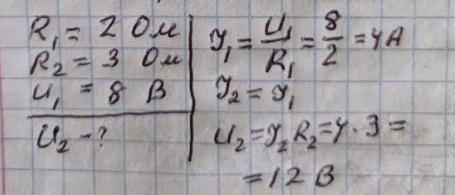 R₁ = 2 Ом
R₂ = 3 Ом
U₁ = 8 В
U₂ - ?
I₁ = U₁/R₁ = 8/2 = 4 А
I₂ = I₁
U₂ = I₂ R₂ = 4 · 3 =
= 12 В